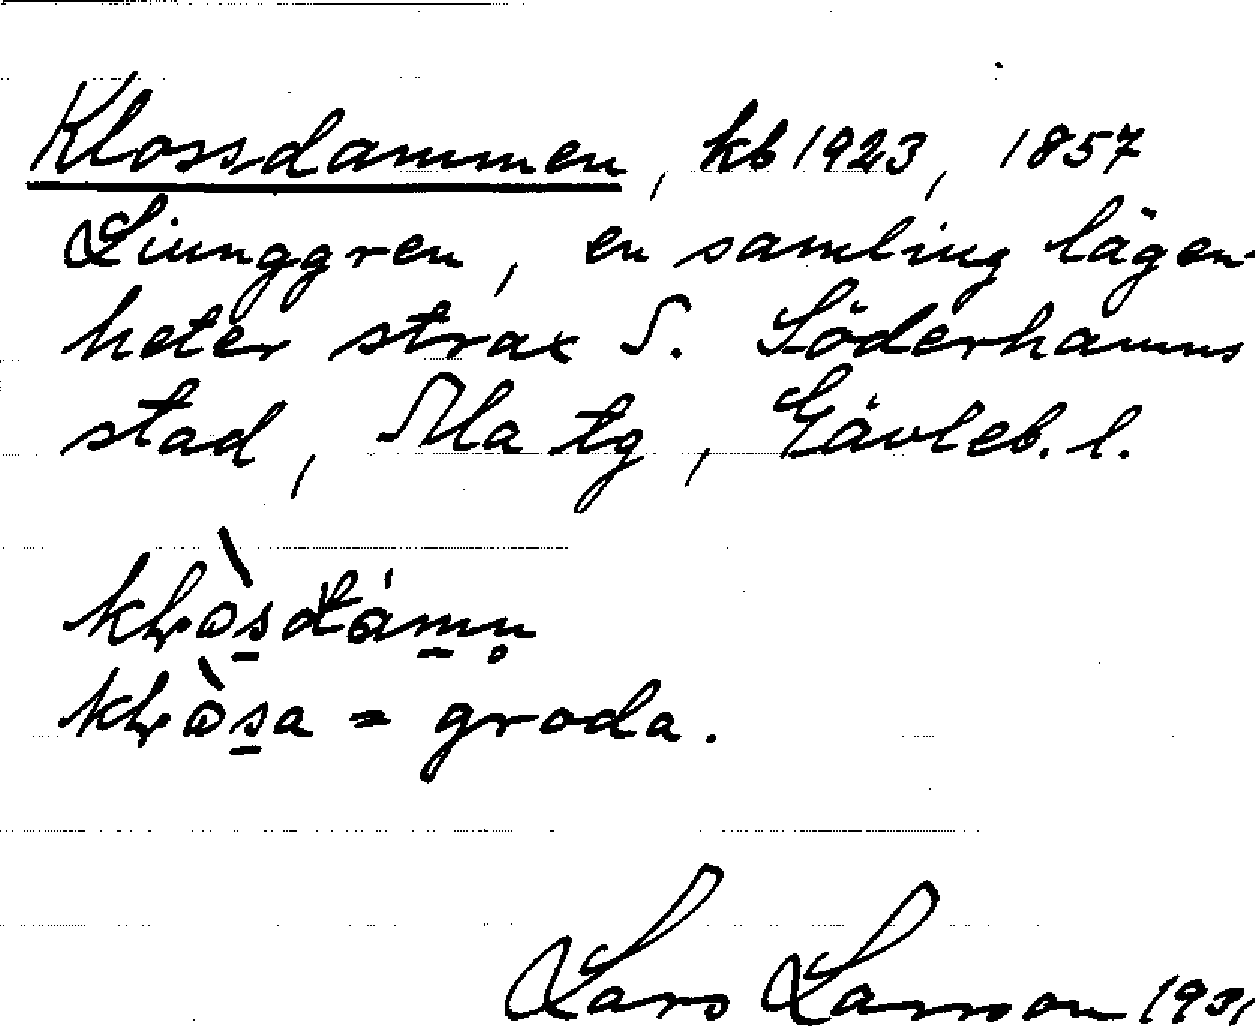 Klossdammen, kb 1923, 1857
Liunggren, en samling lägen-
heter strax S. Söderhamns
stad, Ala tg, Gävleb. l.
= groda.
Lars Larsson 1931